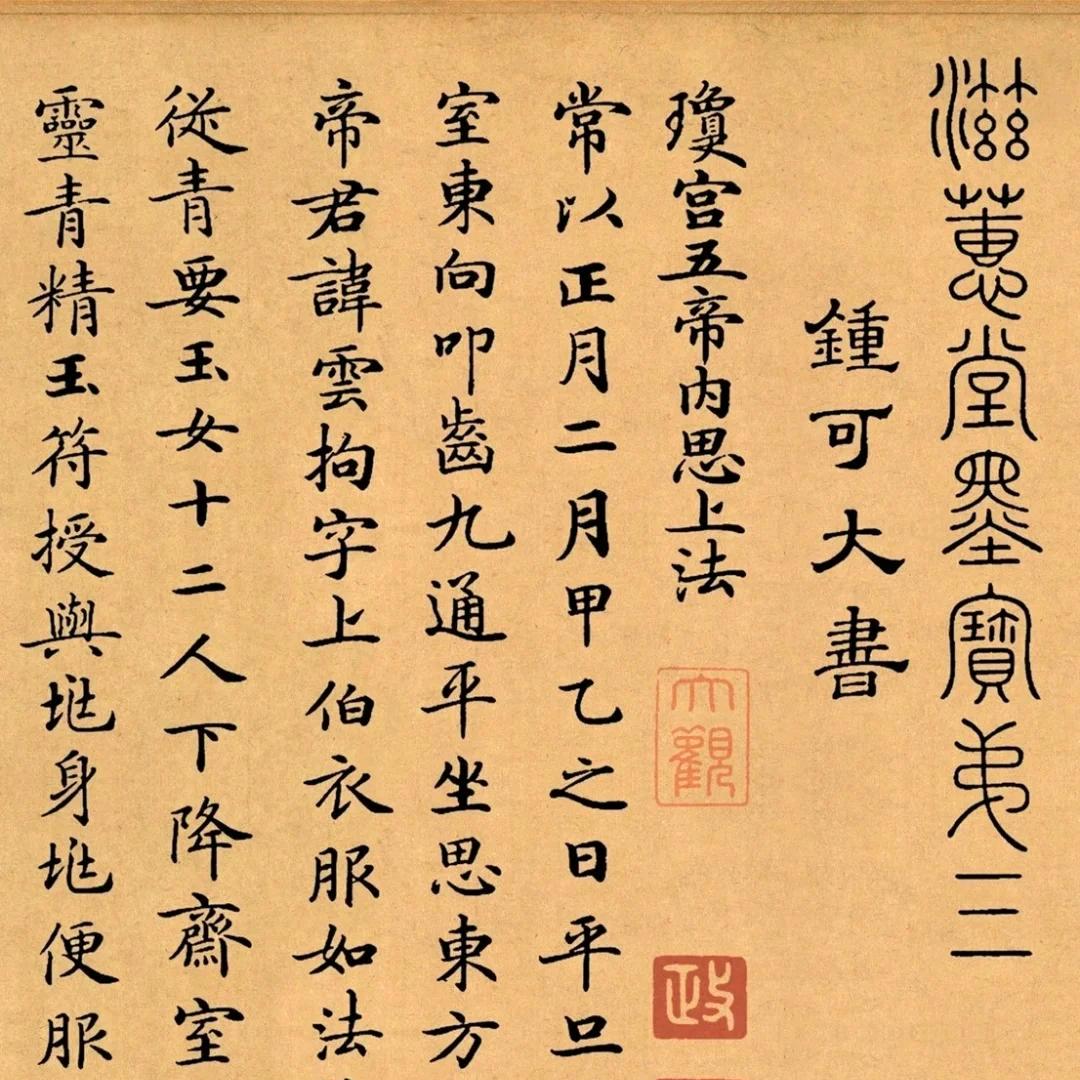 滋蕙堂墨寶弟三
鍾可大書
瓊宫五帝内思上法
大觀
政
常以正月二月甲乙之日平旦
室東向叩齒九通平坐思東方
帝君諱雲拘字上伯衣服如法
從青要玉女十二人下降齋室
靈青精玉符授與垗身垗便服